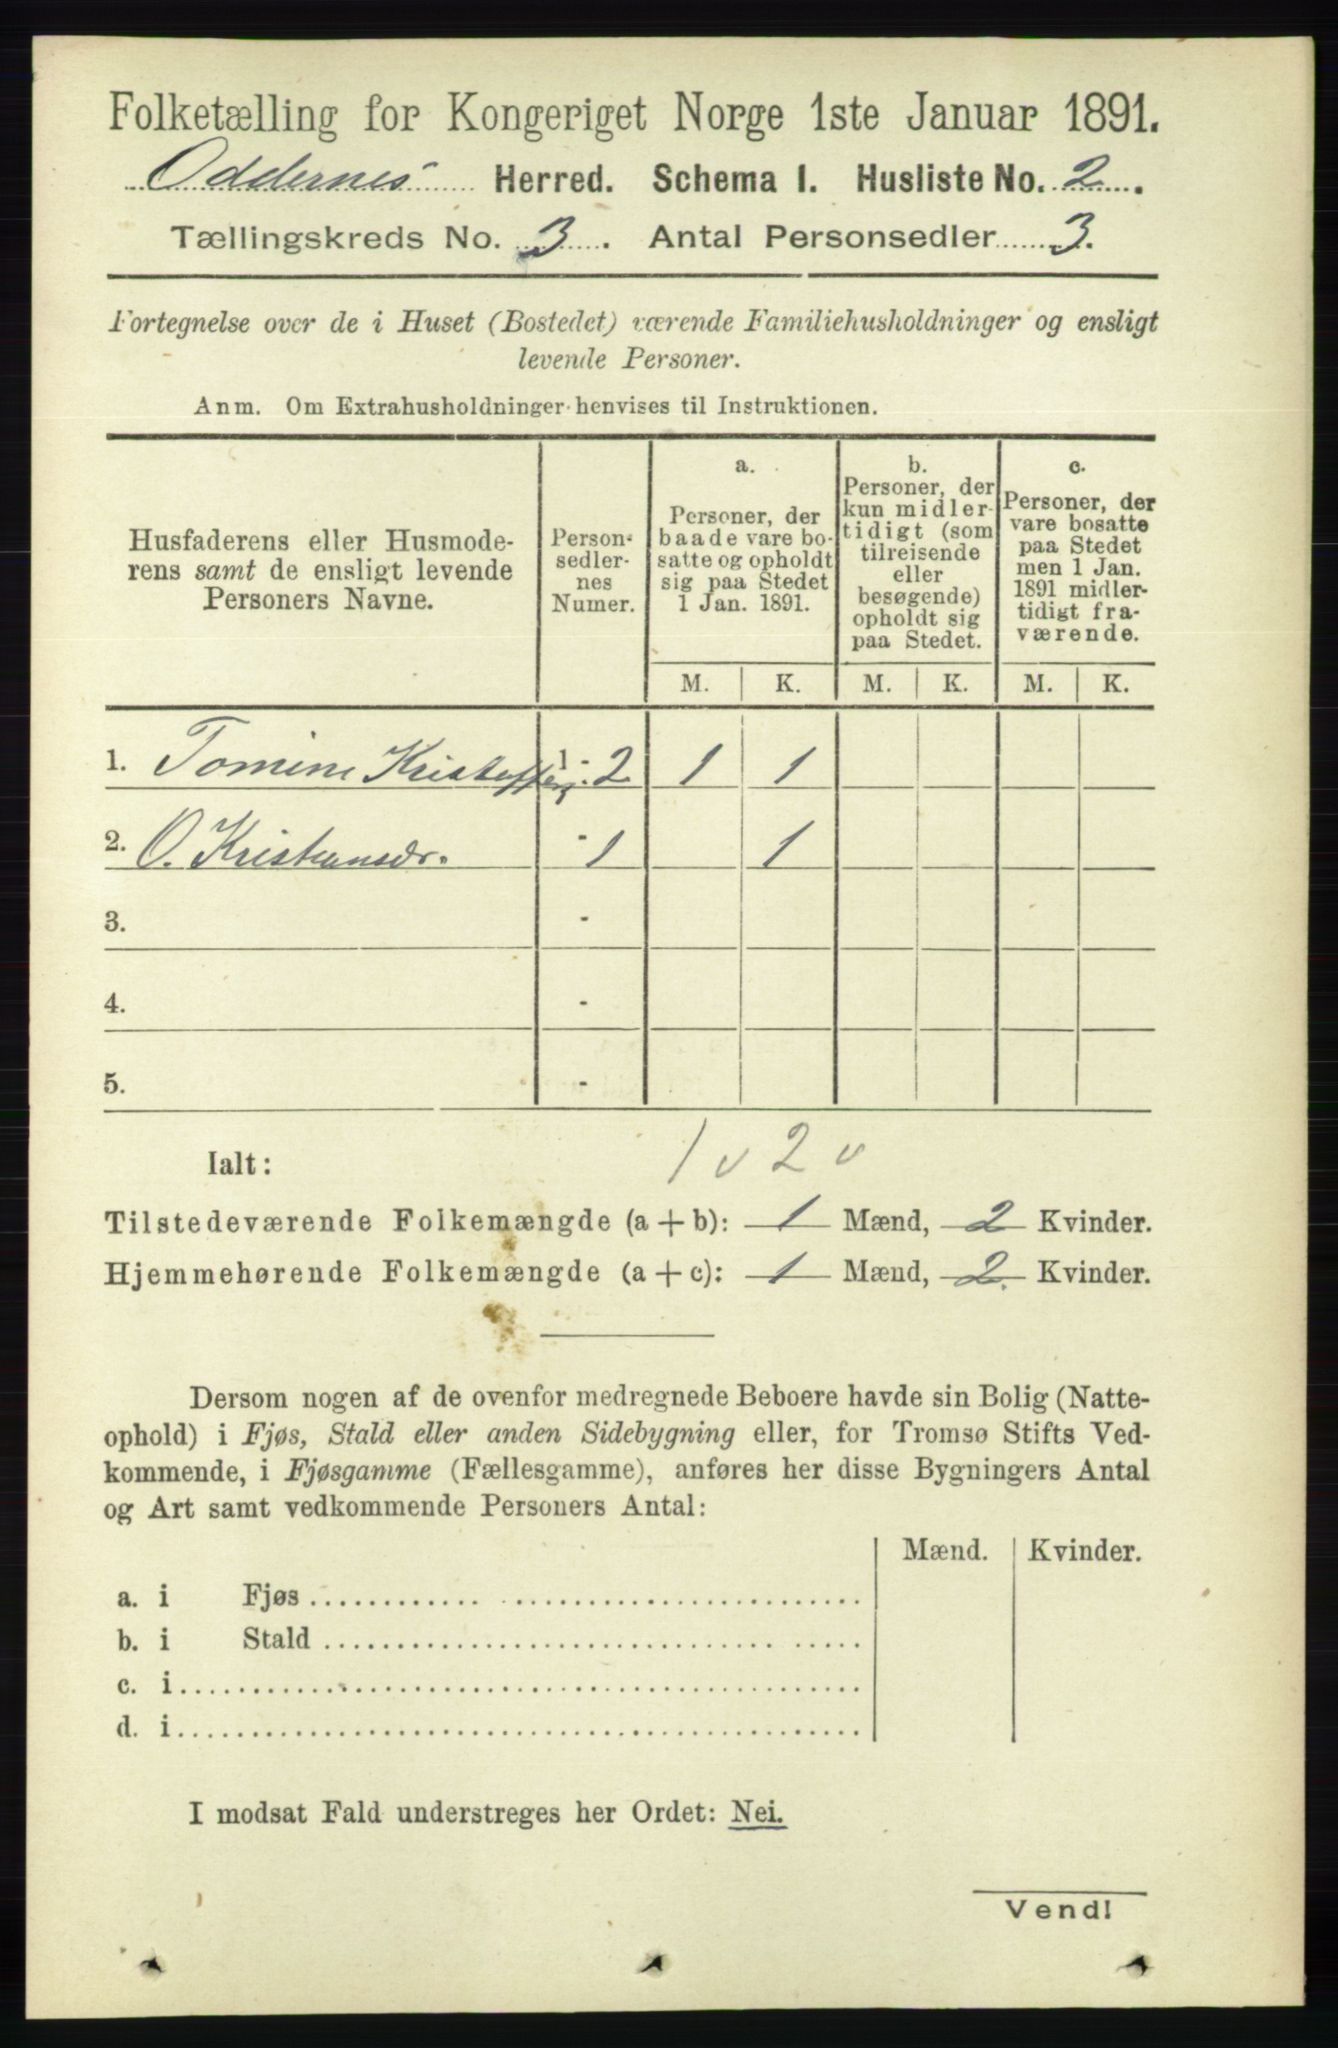 Folketælling for Kongeriget Norge 1ste Januar 1891.
Oddernes Herred. Schema I. Husliste No. 2.
Tællingskreds No. 3. Antal Personsedler 3.
Fortegnelse over de i Huset (Bostedet) værende Familiehusholdninger og ensligt
levende Personer.
Anm. Om Extrahusholdninger henvises til Instruktionen.
Husfaderens eller Husmode-
rens samt de ensligt levende
Personers Navne.
Person-
sedler-
nes
Numer.
a.
Personer, der
baade vare bo-
satte og opholdt
sig paa Stedet
1 Jan. 1891.
b.
Personer, der
kun midler-
tidigt (som
tilreisende
eller
besøgende)
opholdt sig
paa Stedet.
c.
Personer, der
vare bosatte
paa Stedet
men 1 Jan.
1891 midler-
tidigt fra-
værende.
M. K. M. K. M. K.
1. Tomine 1-2 1 1
2. O. Kristiansdr. - 1 1
3. -
4. -
5. -
1 v 2 v
Ialt:
Tilstedeværende Folkemængde (a + b): 1 Mænd, 2 Kvinder.
Hjemmehørende Folkemængde (a + c): 1 Mænd, 2. Kvinder.
Dersom nogen af de ovenfor medregnede Beboere havde sin Bolig (Natte-
ophold) i Fjøs, Stald eller anden Sidebygning eller, for Tromsø Stifts Ved-
kommende, i Fjøsgamme (Fællesgamme), anføres her disse Bygningers Antal
og Art samt vedkommende Personers Antal:
Mænd. Kvinder.
a. i Fjøs
b. i Stald
c. i
d. i
I modsat Fald understreges her Ordet: Nei.
Vend!